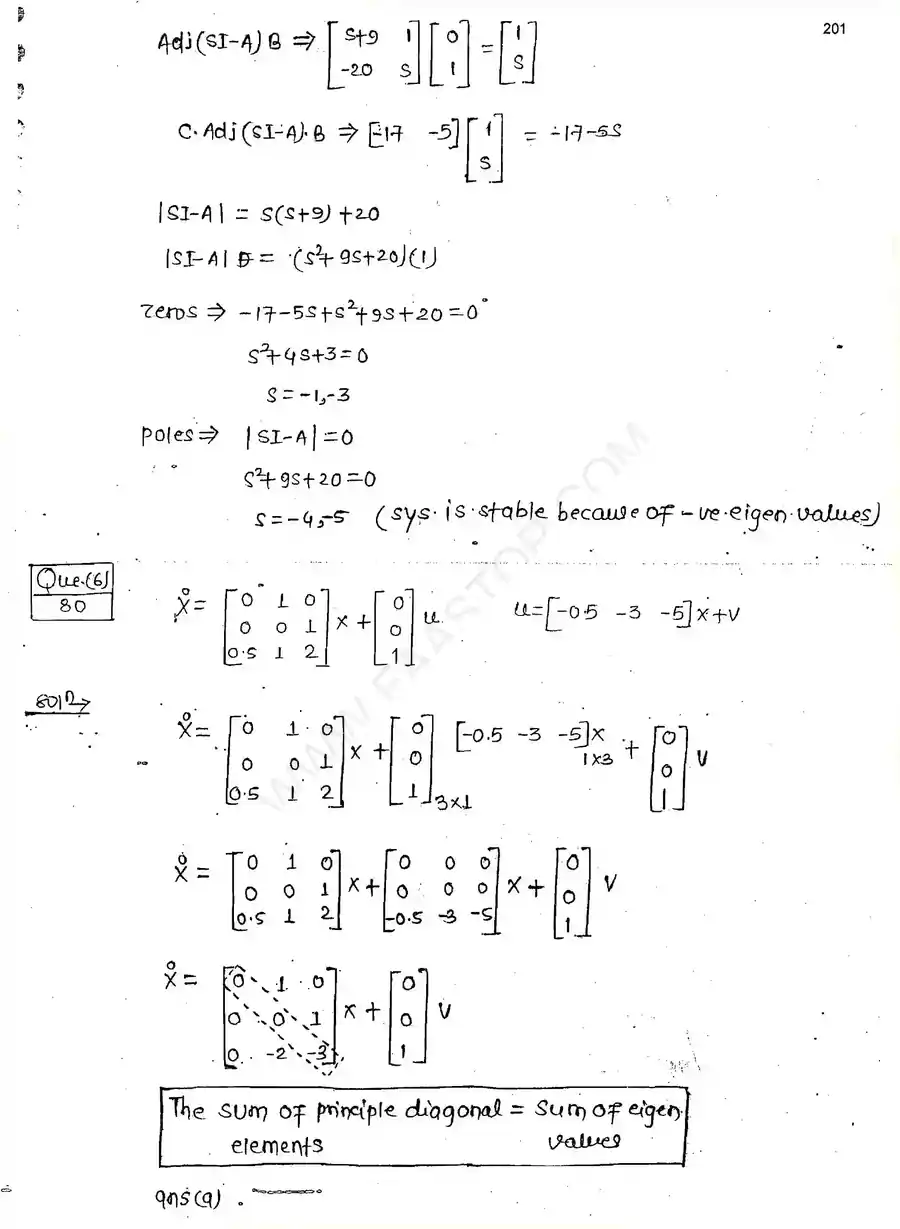 201
Adj(SI-A) B ⇒ [S+9 1; -20 S] [0; 1] = [1; S]
C. Adj(SI-A). B ⇒ [-17 -5] [1; S] = -17-5S
|SI-A| = S(S+9) +20
|SI-A| D = (S²+9S+20)(1)
zeros ⇒ -17-5S+S²+9S+20=0
S²+4S+3=0
S=-1,-3
poles ⇒ |SI-A|=0
S²+9S+20=0
S=-4,-5 (sys. is stable because of -ve eigen values)
Que.(6)
80
Ẋ= [0 1 0; 0 0 1; 0.5 1 2] X + [0; 0; 1] u u=[-0.5 -3 -5]X+V
Soln→
Ẋ= [0 1 0; 0 0 1; 0.5 1 2] X + [0; 0; 1] 3×1 [-0.5 -3 -5]X 1×3 + [0; 0; 1] V
Ẋ= [0 1 0; 0 0 1; 0.5 1 2] X+ [0 0 0; 0 0 0; -0.5 -3 -5] X + [0; 0; 1] V
Ẋ= [0 1 0; 0 0 1; 0 -2 -3] X + [0; 0; 1] V
The sum of principle diagonal = Sum of eigen
elements values
ans(a).
WWW.FAASTOP.COM